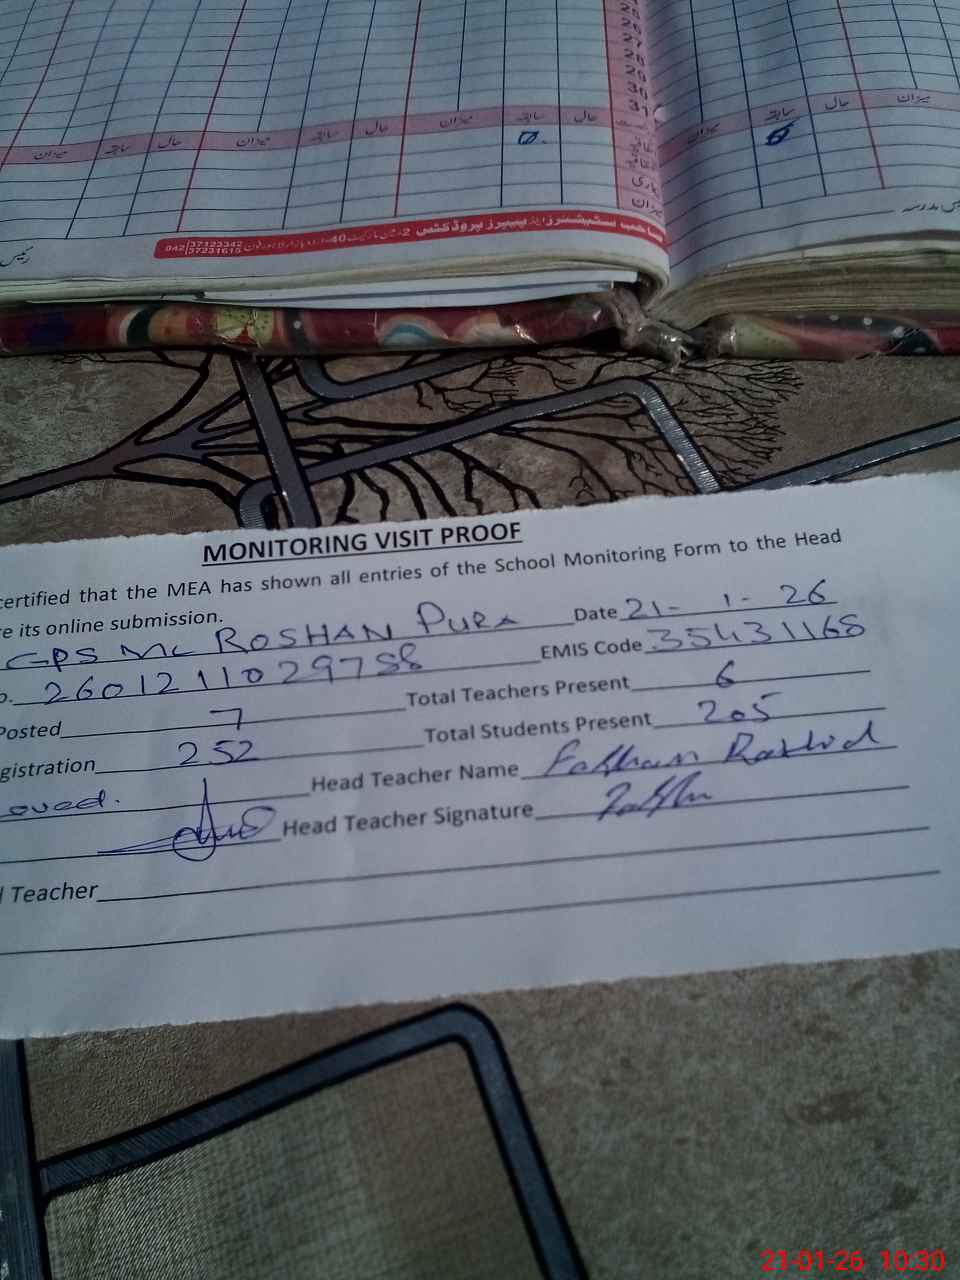 25
26
27
28
29
30
31
میزان سابقہ حال میزان سابقہ حال میزان سابقہ حال
میزان سابقہ حال میزان
میزان
042 37123342
37231615
MONITORING VISIT PROOF
certified that the MEA has shown all entries of the School Monitoring Form to the Head
re its online submission.
GPS MC ROSHAN PURA Date 21-1-26
o. 2601211029788 EMIS Code 35431168
Posted 7 Total Teachers Present 6
gistration 252 Total Students Present 205
oved. Head Teacher Name Rashid
Head Teacher Signature
l Teacher
21-01-26 10:30